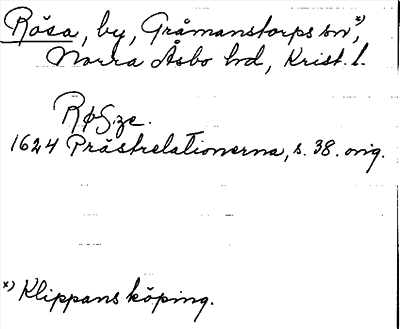 Rösa, by, Gråmanstorps sn*),
Norra Åsbo hd, Krist. l.
RøSze.
1624 Prästrelationerna, s. 38. orig.
*) Klippans köping.